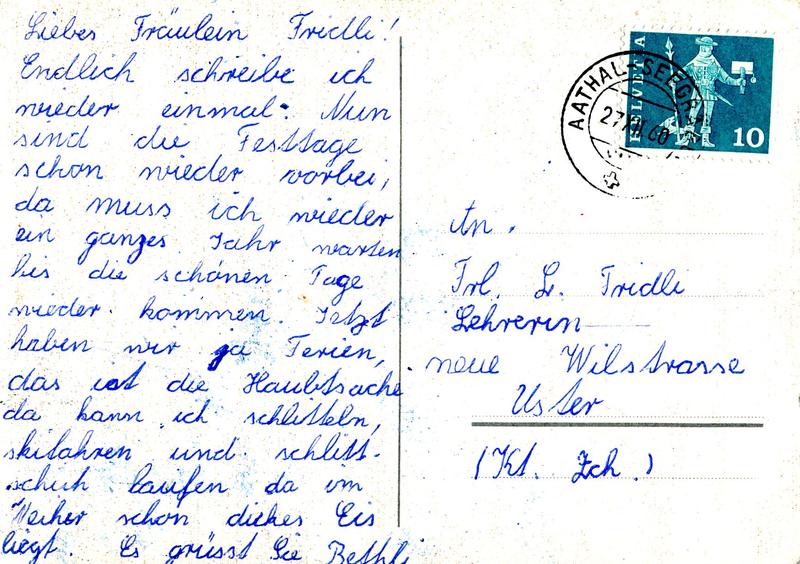 Liebes Fräulein Fridli!
Endlich schreibe ich
wieder einmal. Nun
sind die Festtage
schon wieder vorbei,
da muss ich wieder
ein ganzes Jahr warten
bis die schönen Tage
wieder kommen. Jetzt
haben wir ja Ferien,
das ist die Haubtsache
da kann ich schlitteln,
skifahren und schlitt-
schuh laufen da im
Weiher schon dickes Eis
liegt. Es grüsst Sie Bethli
AATHAL-SEEGR
27.XII.60
HELVETIA
10
An.
Frl. L. Fridli
Lehrerin
neue Wilstrasse
Uster
(Kt. Zch.)